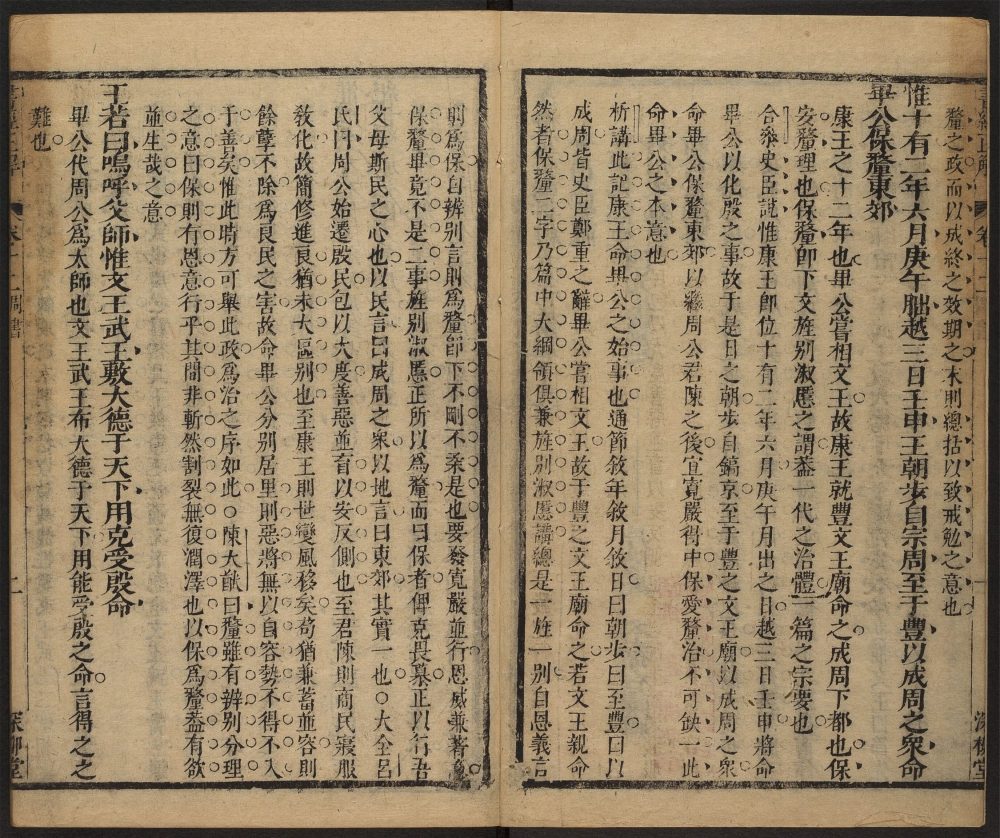 釐之政而以成終之效期之末則總括以致戒勉之意也
惟十有二年六月庚午朏越三日壬申王朝步自宗周至于豐以成周之眾命
畢公保釐東郊
康王之十二年也畢公嘗相文王故康王就豐文王廟命之成周下都也保
安釐理也保釐卽下文旌別淑慝之謂葢一代之治體一篇之宗要也
合叅史臣說惟康王卽位十有二年六月庚午月出之日越三日壬申將命
畢公以化殷之事故于是日之朝步自鎬京至于豐之文王廟以成周之眾
命畢公保釐東郊以繼周公君陳之後宜寬嚴得中保愛釐治不可缺一此
命畢公之本意也
析講此記康王命畢公之始事也通節敘年敘月敘日曰朝步曰至豐曰以
成周皆史臣鄭重之辭畢公嘗相文王故于豐之文王廟命之若文王親命
然者保釐二字乃篇中大綱領俱兼旌別淑慝講總是一旌一別自恩義言
則爲保自辨別言則爲釐卽下不剛不柔是也要發寬嚴並行恩威兼著意
保釐畢竟不是二事旌別淑慝正所以爲釐而曰保者俾克畏慕正以行吾
父母斯民之心也以民言曰成周之眾以地言曰東郊其實一也○大全呂
氏曰周公始遷殷民包以大度善惡並育以安反側也至君陳則商民寖服
敎化故簡修進良猶未大區別也至康王則世變風移矣苟猶兼蓄並容則
餘孽不除爲良民之害故命畢公分別居里則惡將無以自容勢不得不入
于善矣惟此時方可舉此政爲治之序如此○陳大猷曰釐雖有辨別分理
之意曰保則有恩意行乎其間非斬然割裂無復潤澤也以保爲釐葢有欲
並生哉之意
王若曰嗚呼父師惟文王武王敷大德于天下用克受殷命
畢公代周公爲太師也文王武王布大德于天下用能受殷之命言得之之
難也
卷十一 周書
二
深柳堂